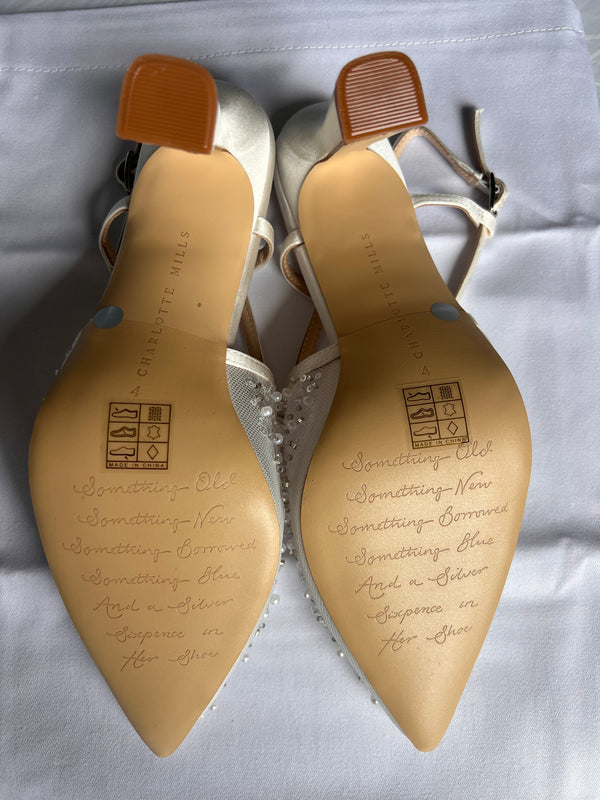 CHARLOTTE MILLS
4
MADE IN CHINA
Something Old
Something New
Something Borrowed
Something Blue
And a Silver
Sixpence in
Her Shoe
CHARLOTTE MILLS
4
MADE IN CHINA
Something Old
Something New
Something Borrowed
Something Blue
And a Silver
Sixpence in
Her Shoe